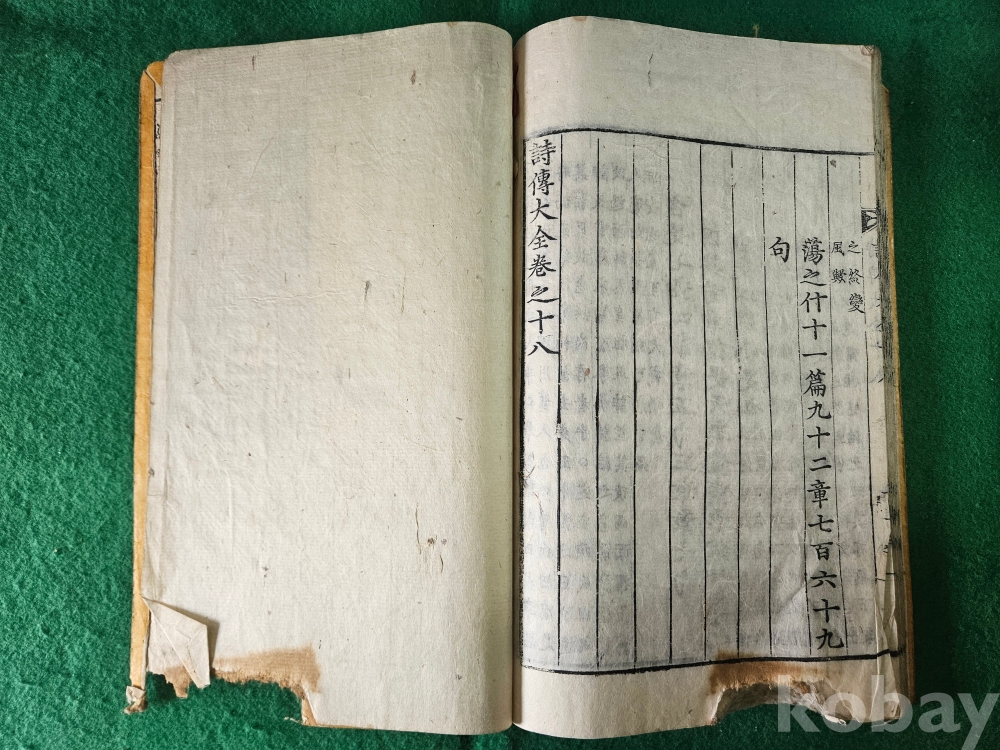 之終變
風歟
蕩之什十一篇九十二章七百六十九
句
詩傳大全卷之十八
kobay